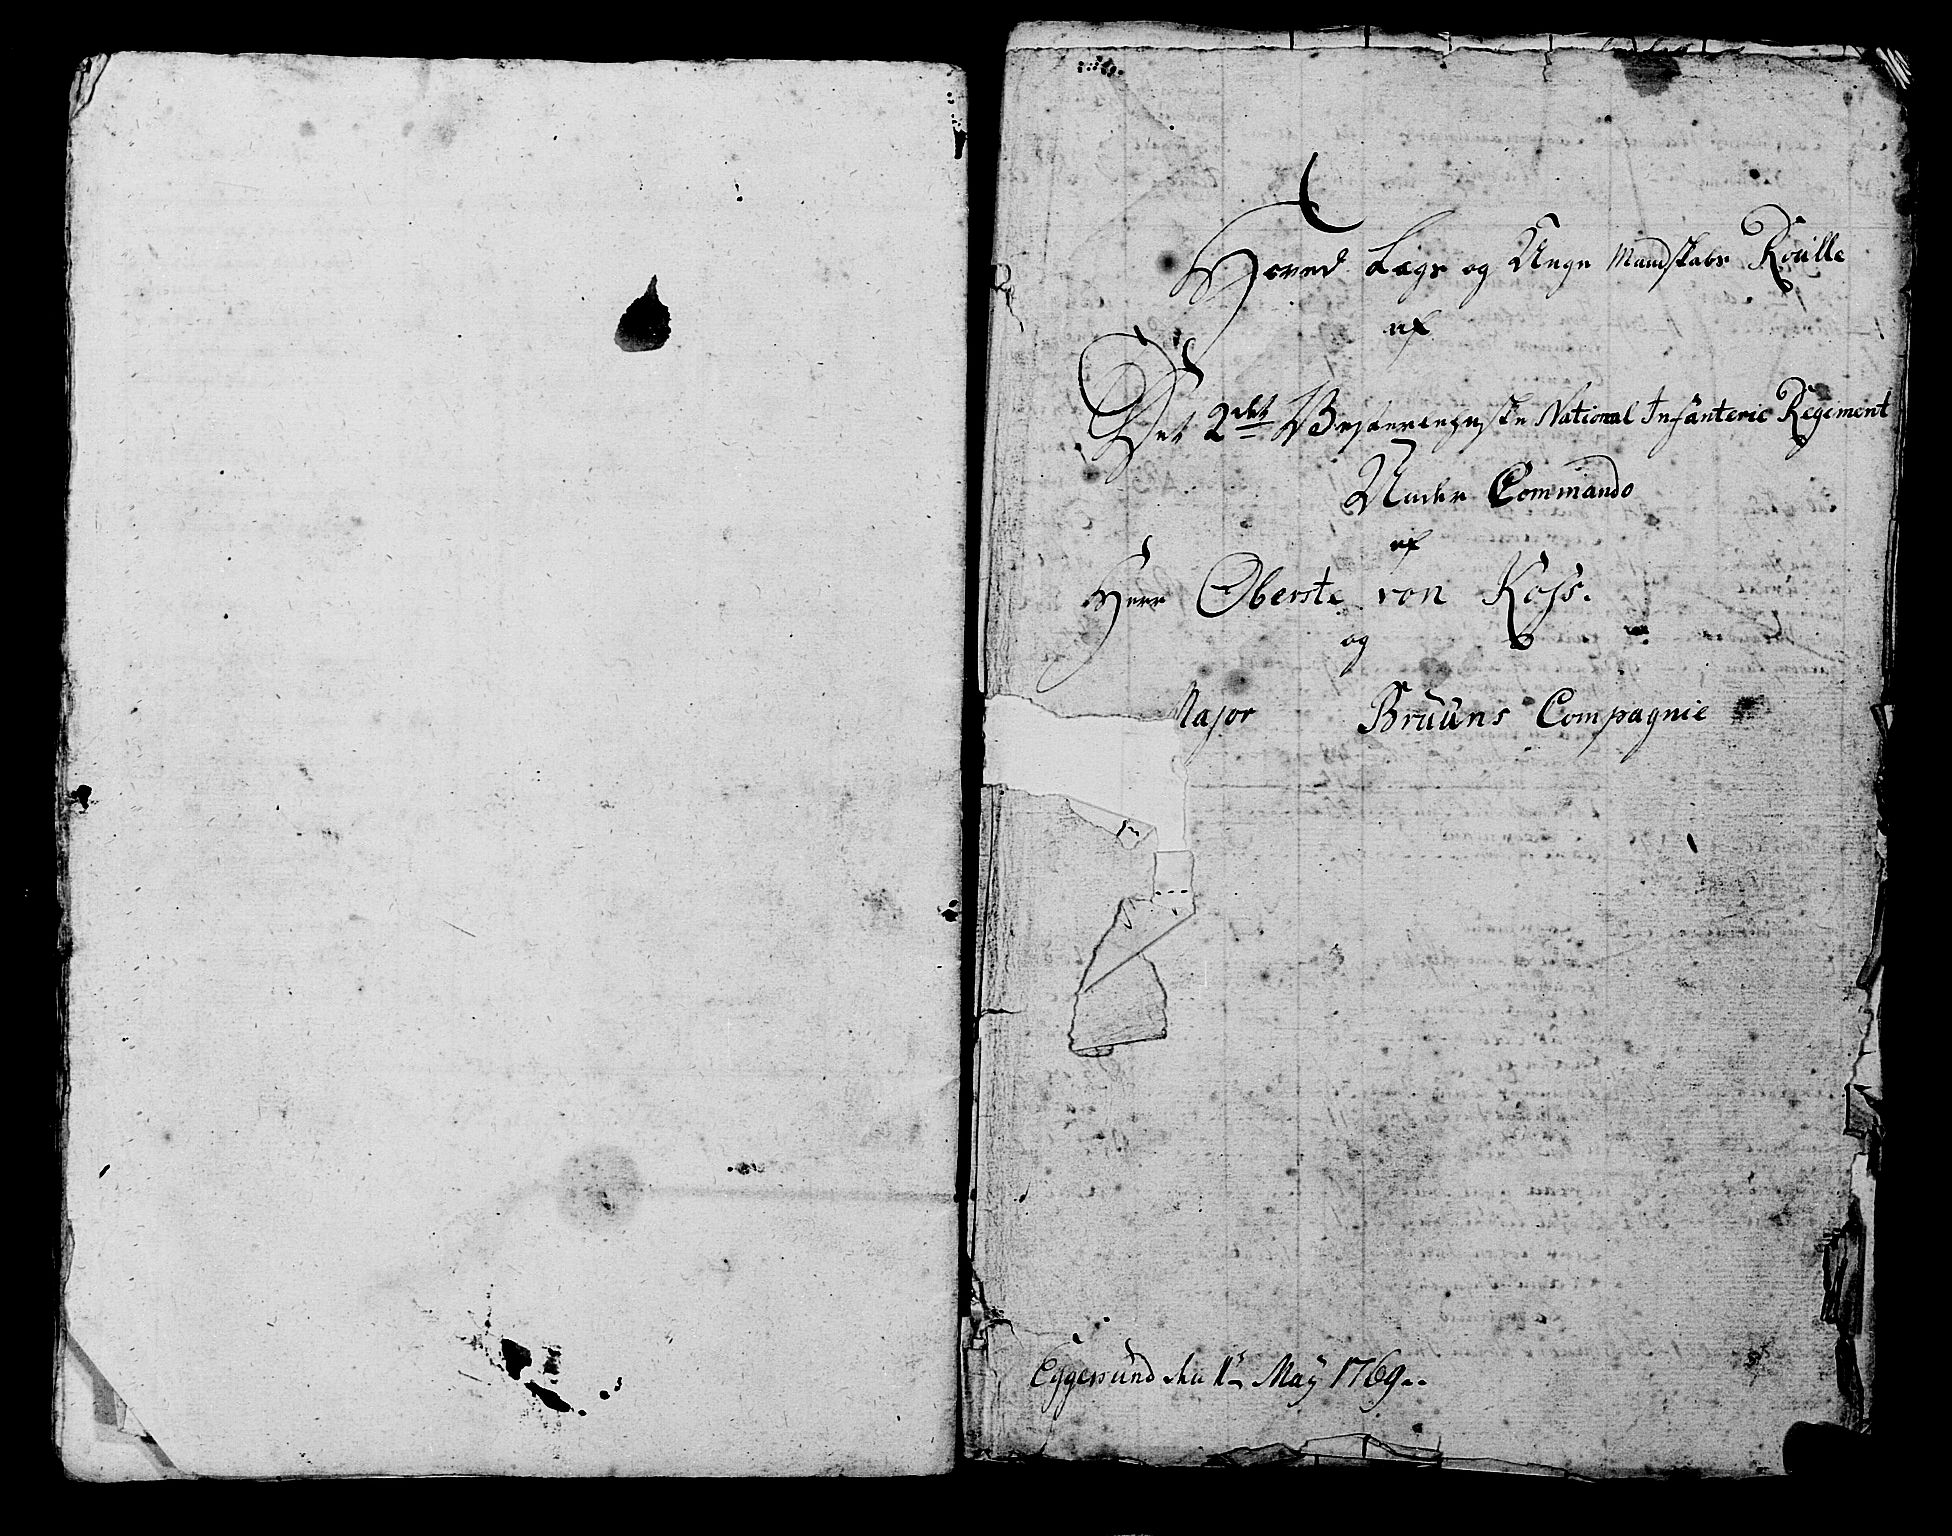 Hoved Lægs og Unge Mandskabs Roulle
af
Det 2det Vesterlehnske National Infanterie Regiment
Under Commando
af
Herr Oberste von Kojs.
og
Major Bruuns Compagnie
Eggersund den 1te May 1769..